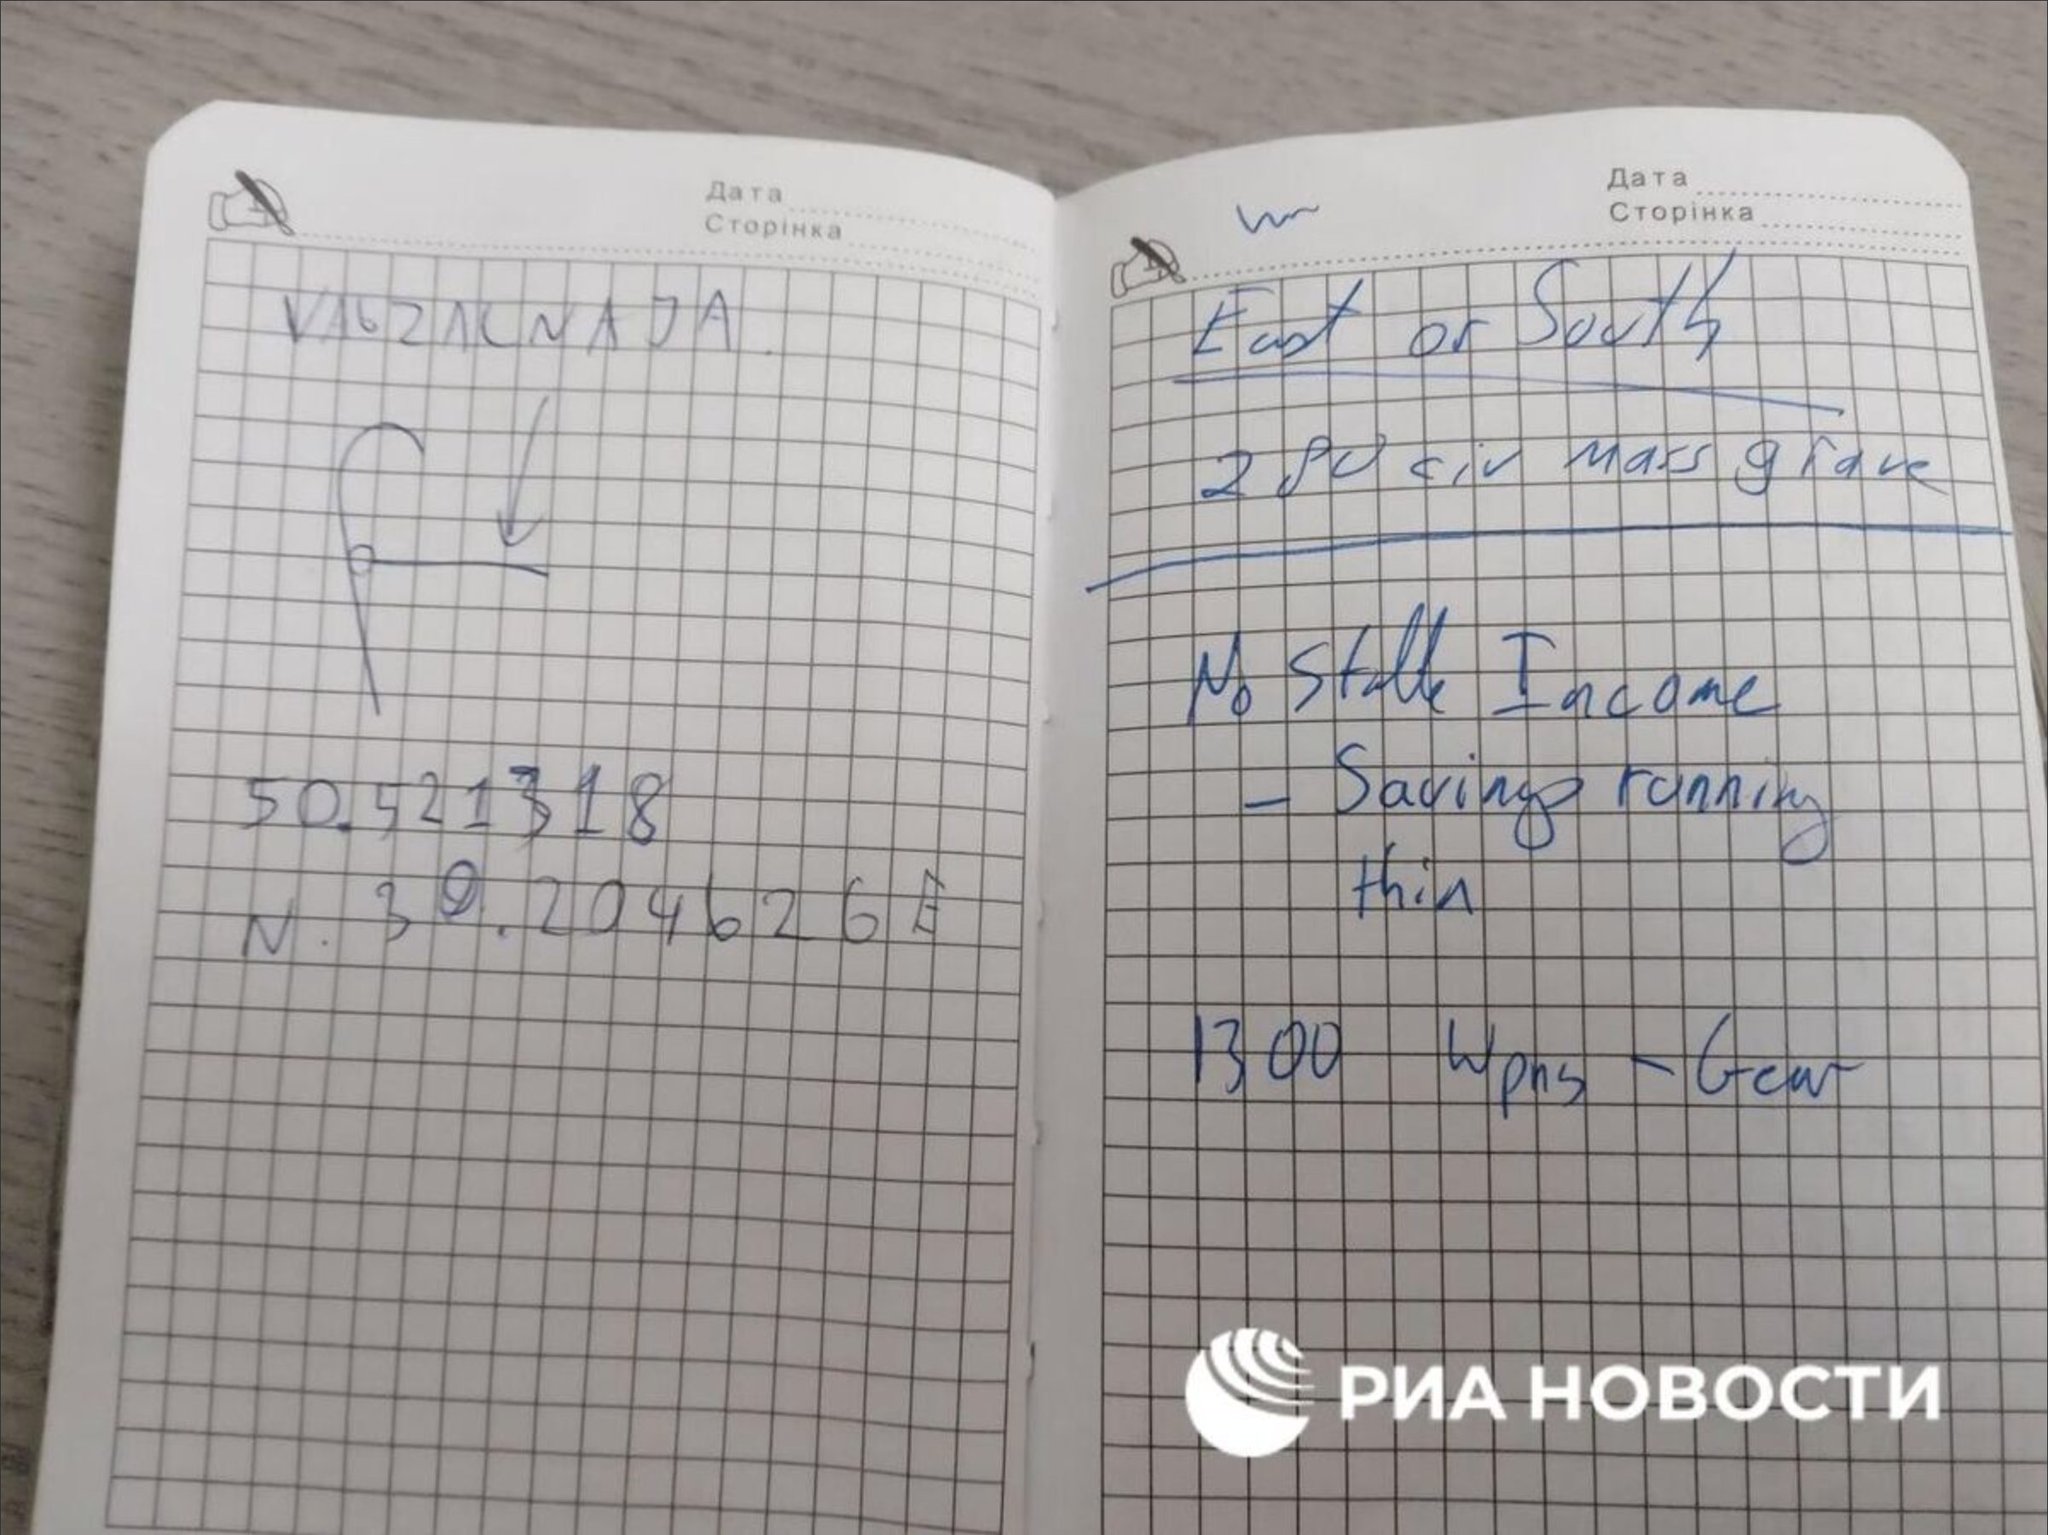 Дата
Сторінка
VAGZALNAJA.
50.521318
N. 30.204626E
Дата
Сторінка
East or South
280 civ mass grave
No Stable Income
- Savings running
thin
1300 Wpns - Gear
РИА НОВОСТИ